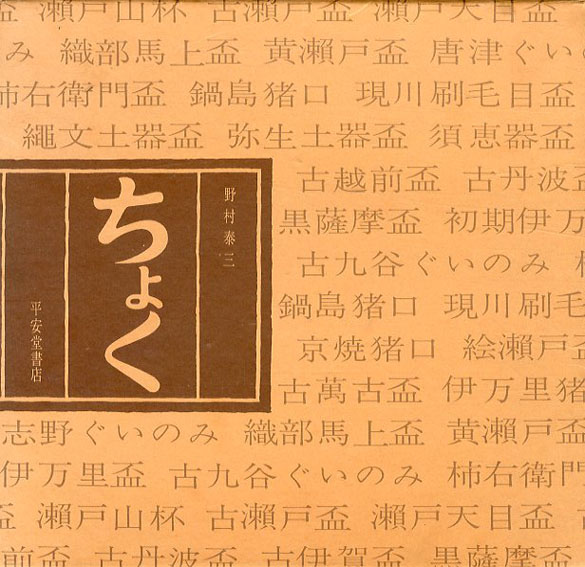 瀬戸山杯 古瀬戸盃 瀬戸天目盃 古
のみ 織部馬上盃 黄瀬戸盃 唐津ぐい
柿右衛門盃 鍋島猪口 現川刷毛目盃
縄文土器盃 弥生土器盃 須恵器盃
古越前盃 古丹波盃
黒薩摩盃 初期伊万
古九谷ぐいのみ
鍋島猪口 現川刷毛
京焼猪口 絵瀬戸盃
古萬古盃 伊万里猪
志野ぐいのみ 織部馬上盃 黄瀬戸盃
伊万里盃 古九谷ぐいのみ 柿右衛門
盃 瀬戸山杯 古瀬戸盃 瀬戸天目盃 古
前盃 古丹波盃 古伊賀盃 黒薩摩盃
野村泰三
ちょく
平安堂書店